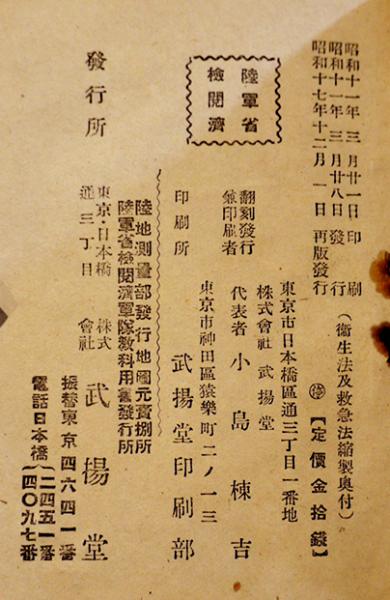 昭和十一年三月廿一日印刷
昭和十一年三月廿八日發行
昭和十七年十二月一日再版發行
(衞生法及救急法縮製奧付)
㊞【定價金拾錢】
陸軍省
檢閱濟
翻刻發行
兼印刷者
東京市日本橋區通三丁目一番地
株式會社 武揚堂
代表者 小島棟吉
東京市神田區猿樂町二ノ一三
印刷所 武揚堂印刷部
陸地測量部發行地圖元賣捌所
陸軍省檢閱濟軍隊敎科用書發行所
發行所
東京・日本橋
通三丁目
株式
會社
武揚堂
振替東京四六四一番
電話日本橋
二四五一番
四〇九七番